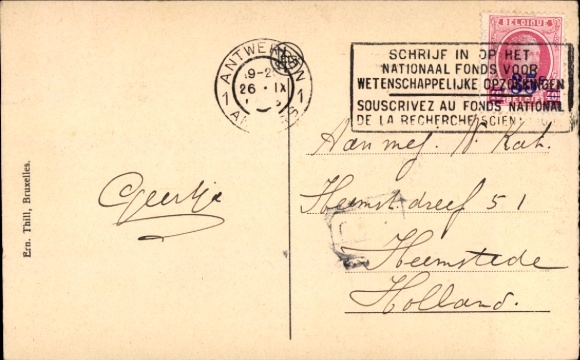 BELGIQUE
ANTWERPEN
19-2
26 · IX
1 1
SCHRIJF IN OP HET
NATIONAAL FONDS VOOR
WETENSCHAPPELIJKE OPZOEKINGEN
SOUSCRIVEZ AU FONDS NATIONAL
DE LA RECHERCHE SCIEN
35
Aan mej. N. Kat.
Heemst. dreef 51
Heemstede
Holland.
Geertje
Ern. Thill, Bruxelles.